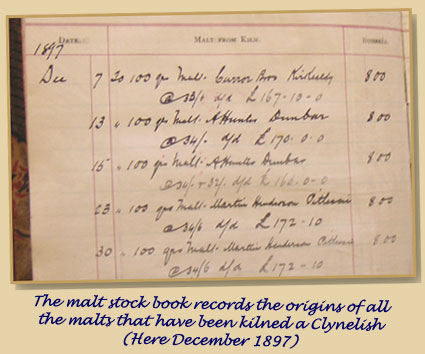 DATE. MALT FROM KILN. BUSHELS.
1897
Dec 7 To 100 qrs Malt. Curror Bros Kirkcaldy 800
@ 33/6 d/d £167-10-0
13 " 100 qrs Malt. A Hunter Dunbar 800
@ 34/- d/d £170.0.0
15 " 100 qrs Malt. A Hunter Dunbar 800
@ 34/- 32/- d/d
23 " 100 qrs Malt. Martin Henderson Pitlessie 800
@ 34/6 d/d £172-10
30 " 100 qrs Malt. Martin Henderson Pitlessie 800
@ 34/6 d/d £172-10
The malt stock book records the origins of all
the malts that have been kilned a Clynelish
(Here December 1897)